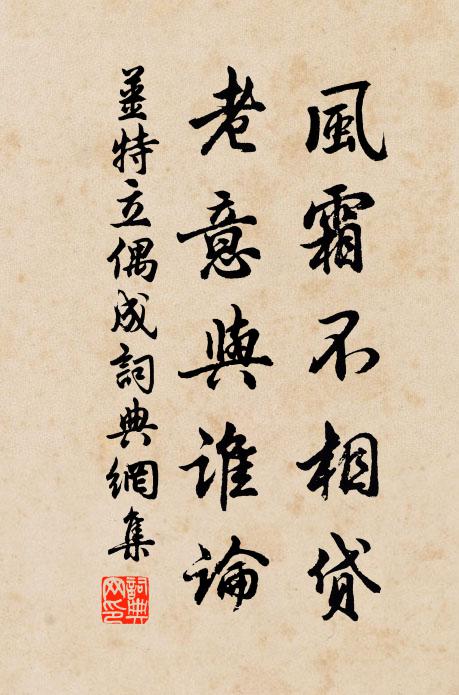 風霜不相貸
老意與誰論
姜特立偶成詞典網集
詞典網印